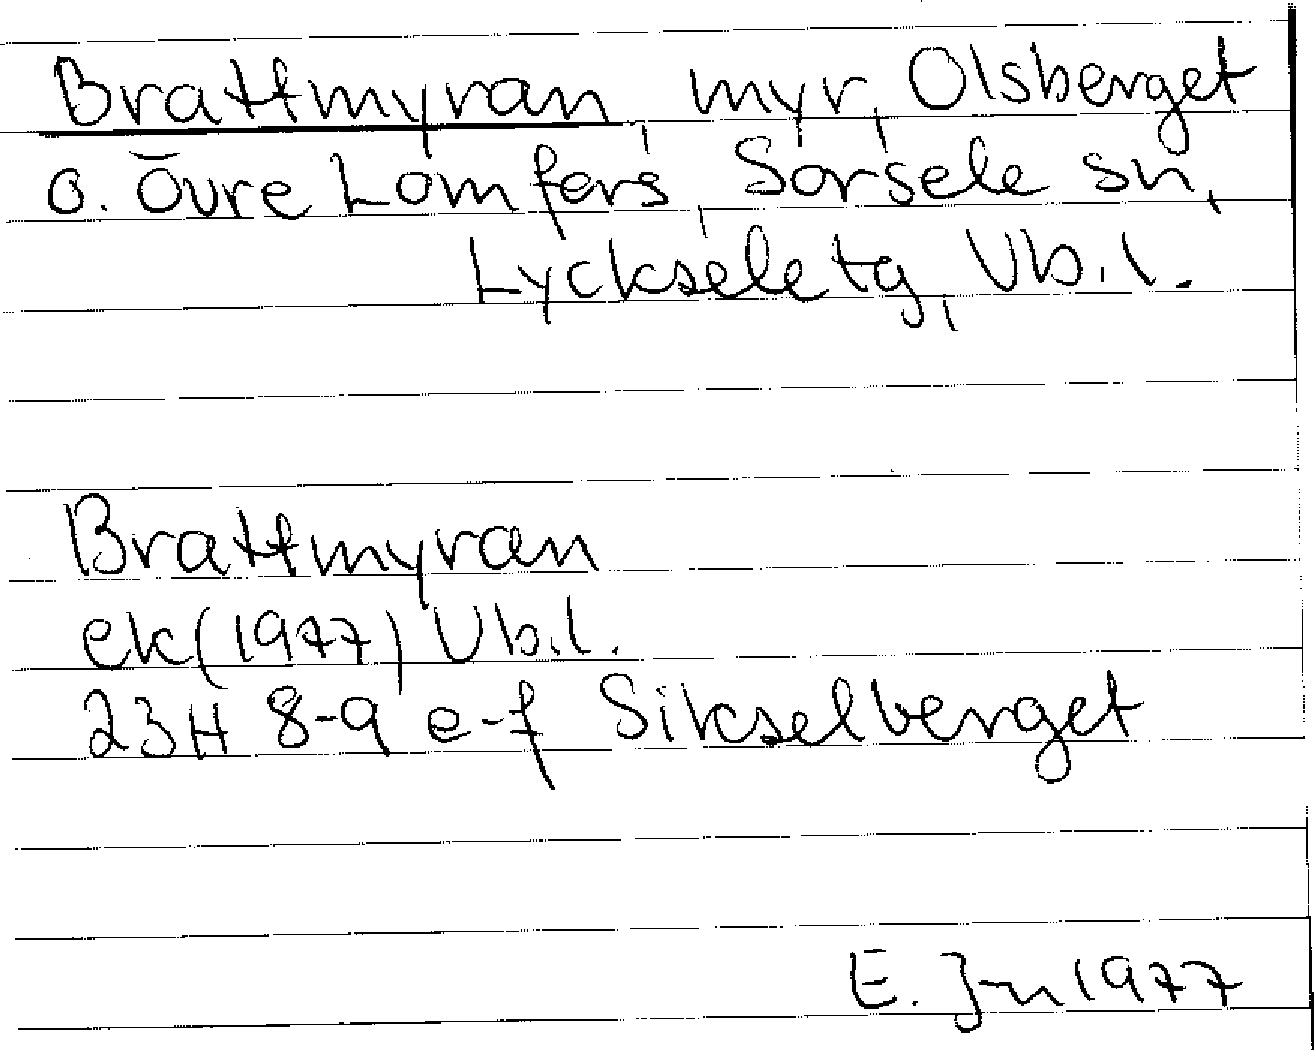 Brattmyran, myr, Olsberget
o. Övre Lomfors, Sorsele sn,
Lycksele tg, Vb.l.
Brattmyran
ek (1977) Vb.l.
23H 8-9 e-f Sikselberget
E. Jn 1977